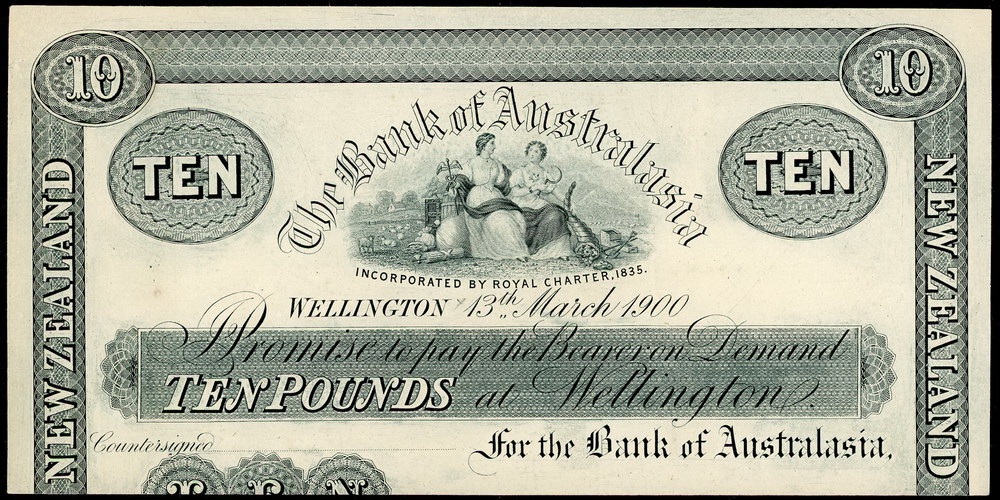 10 10
TEN TEN
The Bank of Australasia
INCORPORATED BY ROYAL CHARTER, 1835.
NEW ZEALAND NEW ZEALAND
WELLINGTON 13th March 1900
I Promise to pay the Bearer on Demand
TEN POUNDS at Wellington.
Countersigned
For the Bank of Australasia,
TEN